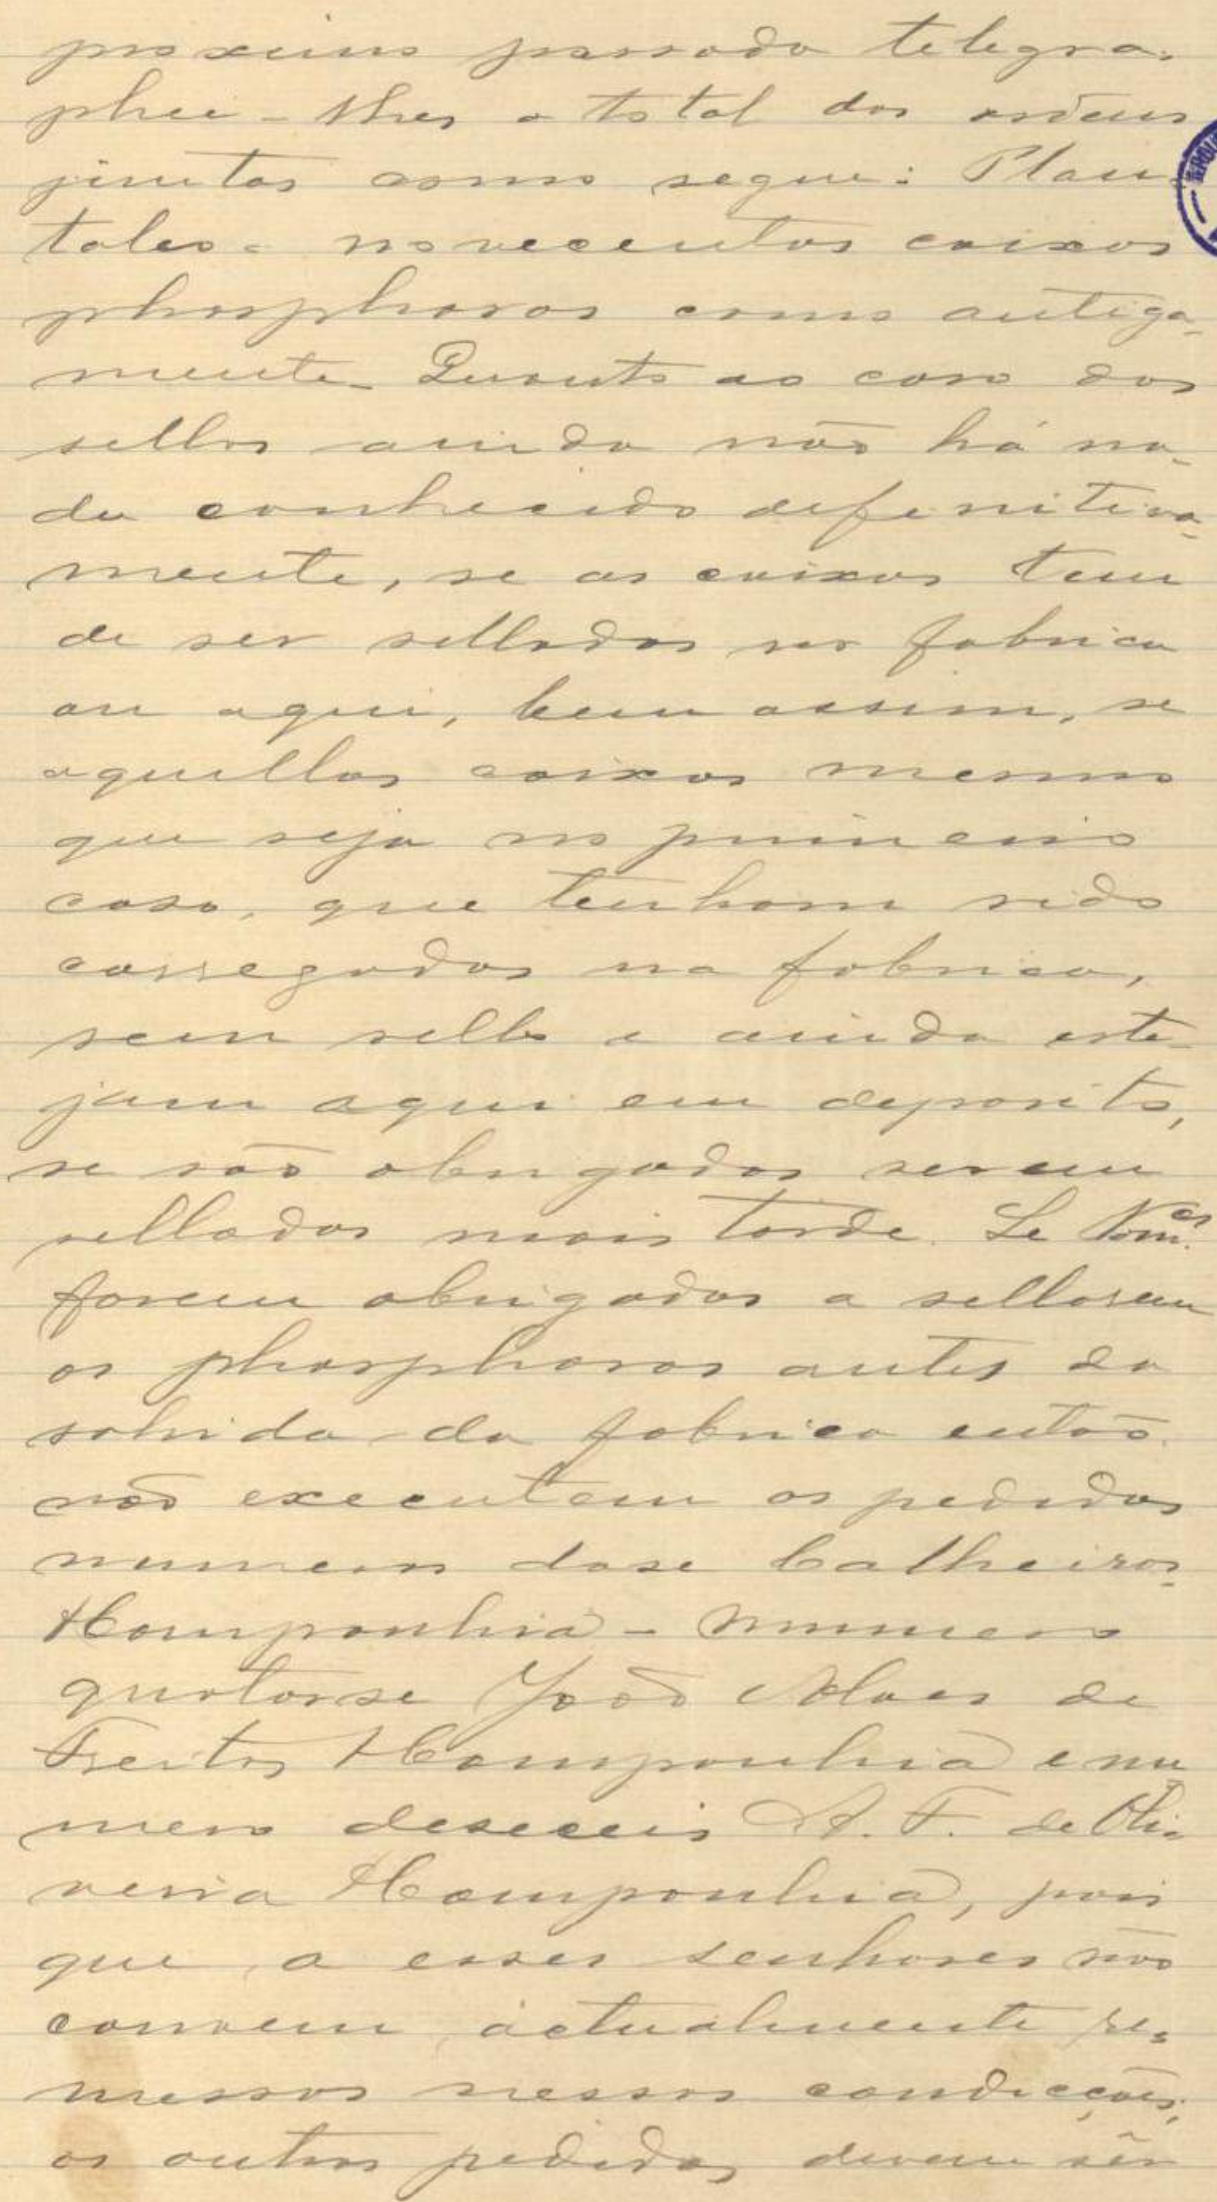 proximo passado telegra-
phei-lhes o total das ordens
juntas como segue: Plan
tales- novecentas caixas
phosphoros como antiga-
mente- Quanto ao caso dos
sellos ainda não há na-
da conhecido defenitiva-
mente, se as caixas tem
de ser selladas na fabrica
ou aqui, bem assim, se
aquellas caixas mesmo
que seja no primeiro
caso, que tenham sido
carregadas na fabrica,
sem sello e ainda este-
jam aqui em deposito,
se são obrigadas serem
selladas mais tarde. Se Vom.ces
forem obrigados a sellarem
os phosphoros antes da
sahida da fabrica então
não executem os pedidos
numeros dose Calheiros
& Companhia - numero
quatorse João Alves de
Freitas & Companhia e nu
mero deseceis A. F. de Oli-
veira & Companhia, pois
que, a esses senhores não
convem actualmente re-
messas nessas condicções;
os outros pedidos devem sêr